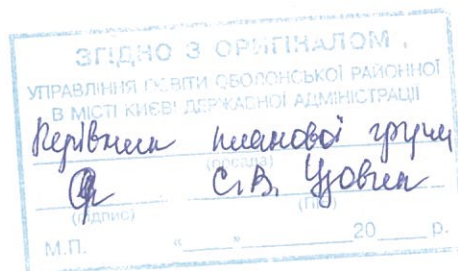 ЗГІДНО З ОРИГІНАЛОМ
УПРАВЛІННЯ ОСВІТИ ОБОЛОНСЬКОЇ РАЙОННОЇ
В МІСТІ КИЄВІ ДЕРЖАВНОЇ АДМІНІСТРАЦІЇ
Керівник планової групи
(посада)
С.В.
(підпис) (ПІБ)
М.П. "___"______20___р.